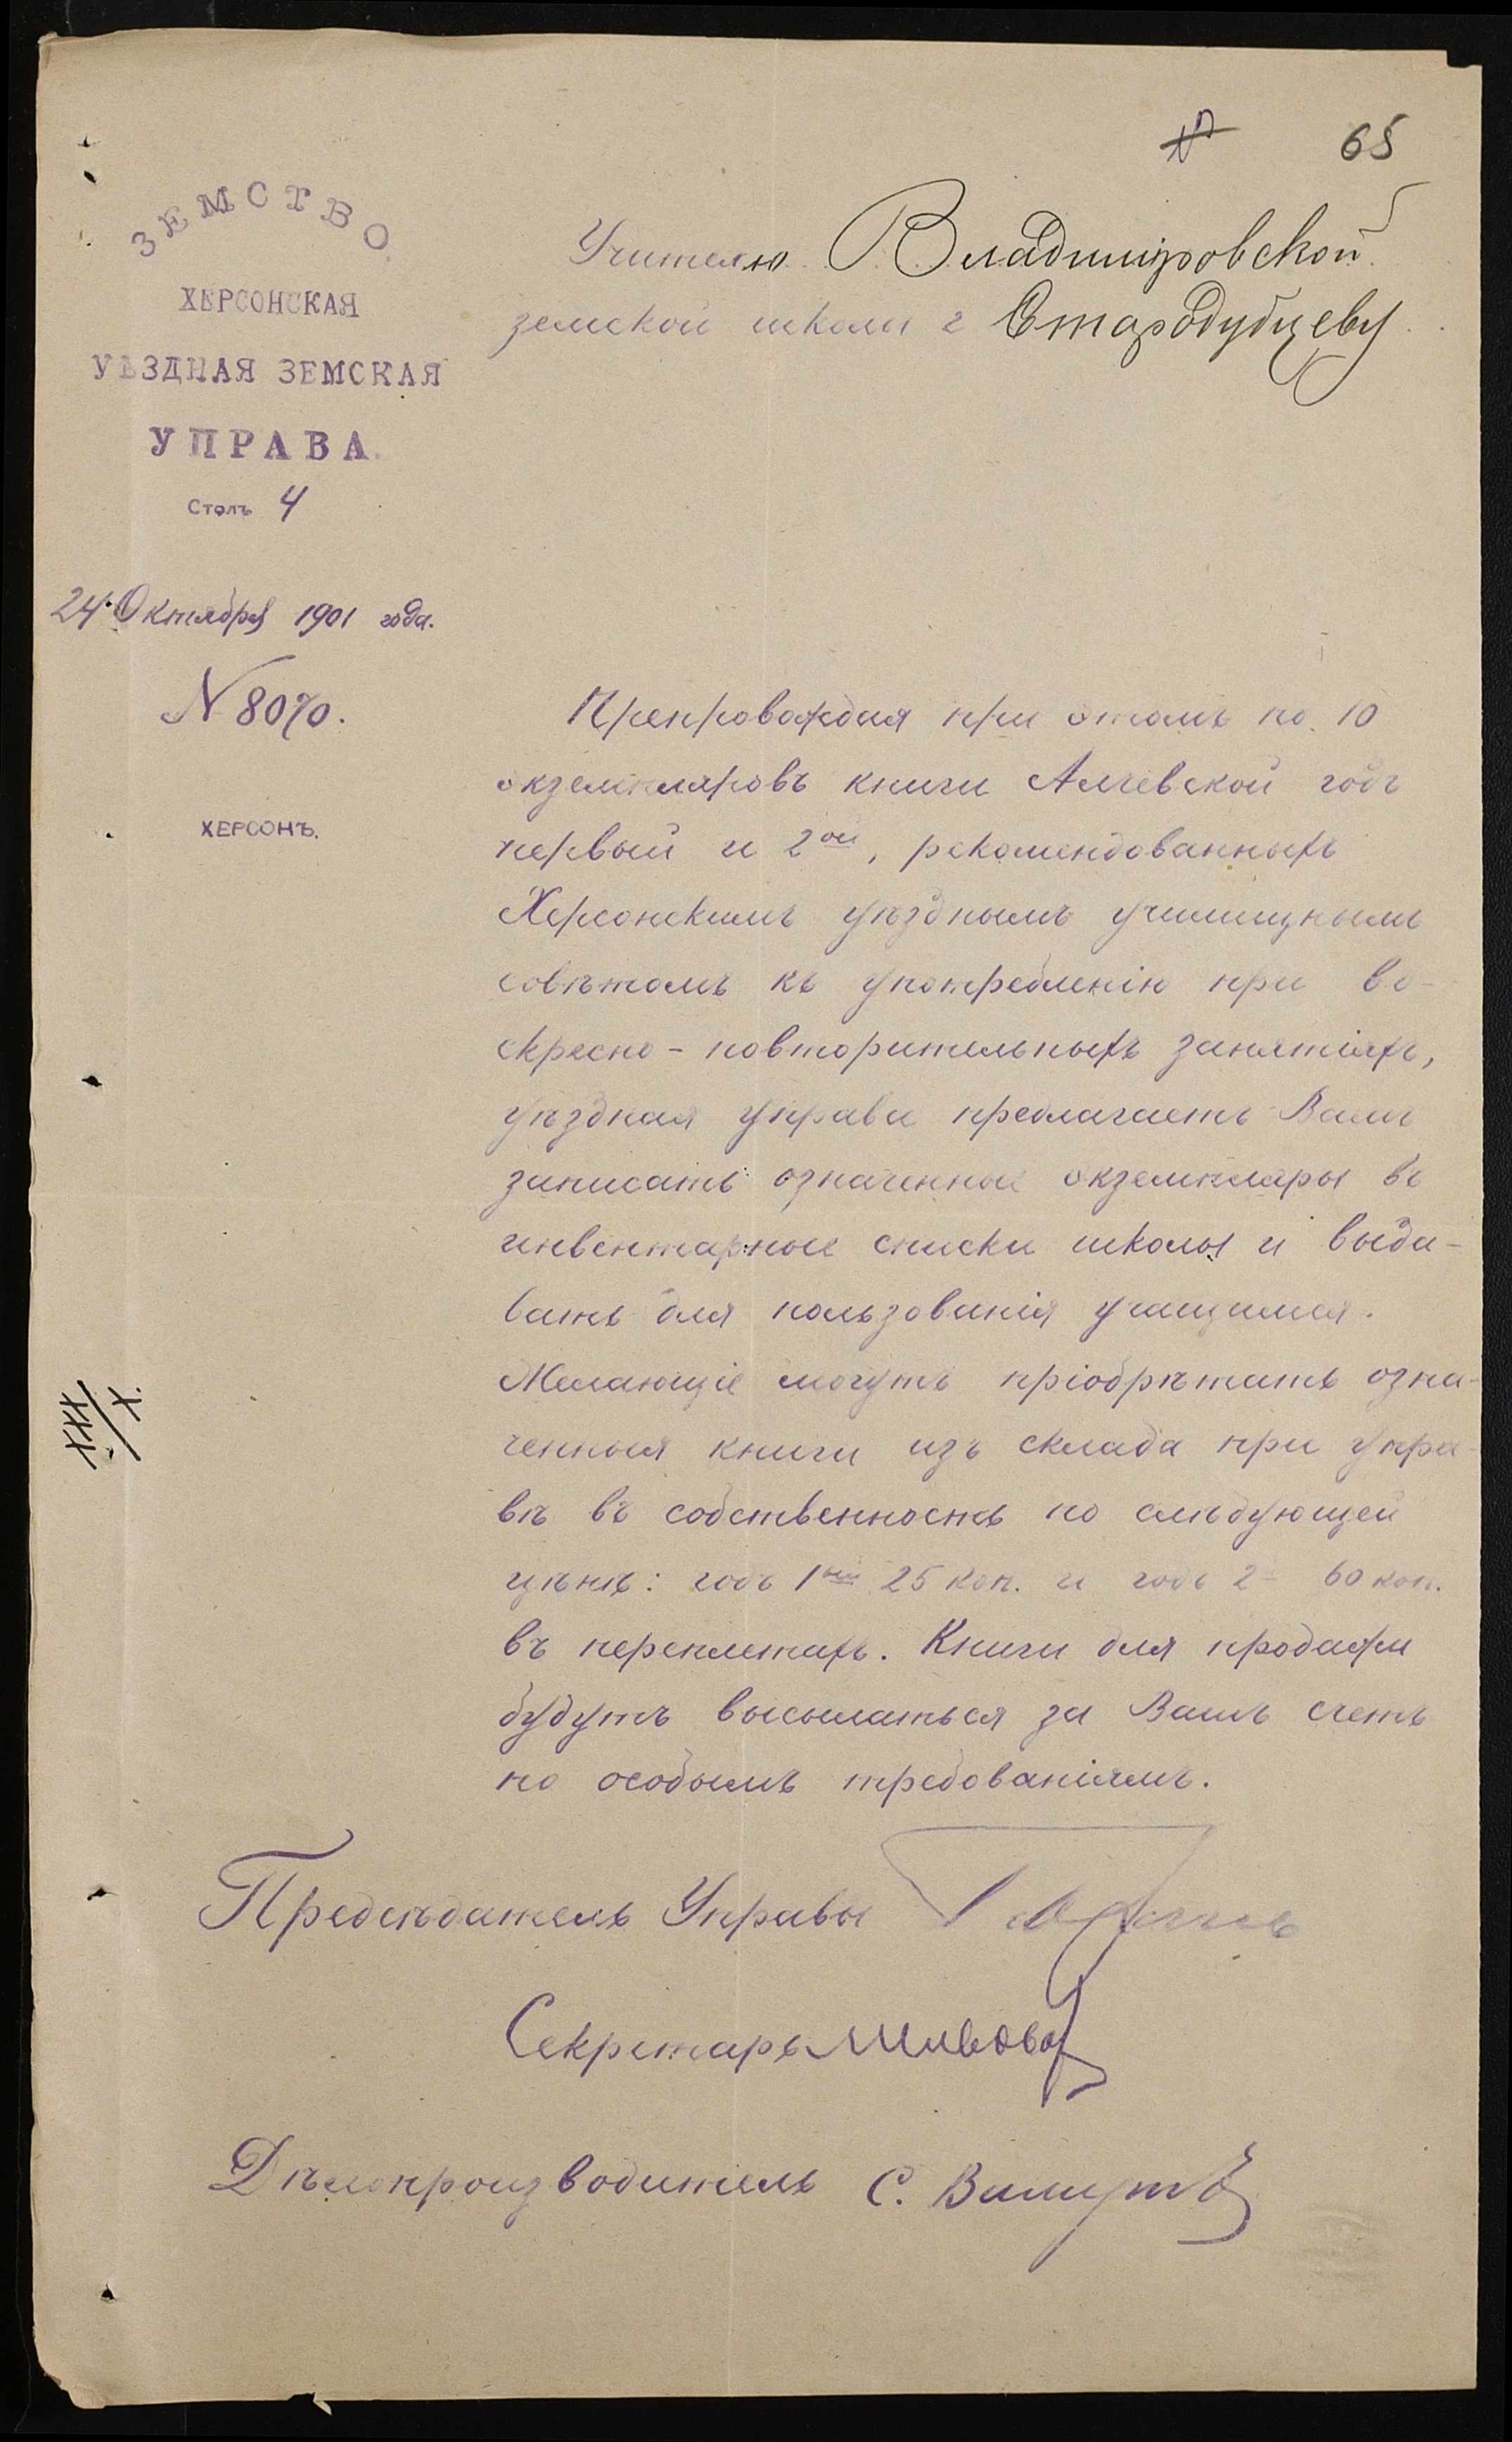 65
ЗЕМСТВО
ХЕРСОНСКАЯ
УѢЗДНАЯ ЗЕМСКАЯ
УПРАВА.
Столъ 4
24 Октября 1901 года.
N 8070.
ХЕРСОНЪ.
Учителю Владимiровской
земской школы г. Стародубцеву
Препровождая при этомъ по 10
экземпляровъ книги Алчевской годъ
первый и 2ой, рекомендованныхъ
Херсонскимъ уѣзднымъ училищнымъ
совѣтомъ къ употребленію при во-
скресно-повторительныхъ занятіяхъ,
уѣздная управа предлагаетъ Вамъ
записать означенные экземпляры въ
инвентарные списки школы и выда-
вать для пользованія учащимся.
Желающіе могутъ пріобрѣтать озна-
ченныя книги изъ склада при упра-
вѣ въ собственность по слѣдующей
цѣнѣ: годъ 1ый 25 коп. и годъ 2- 60 коп.
въ переплетахъ. Книги для продажи
будутъ высылаться за Вашъ счетъ
по особымъ требованіямъ.
Предсѣдатель Управы
Секретарь
Дѣлопроизводитель С.